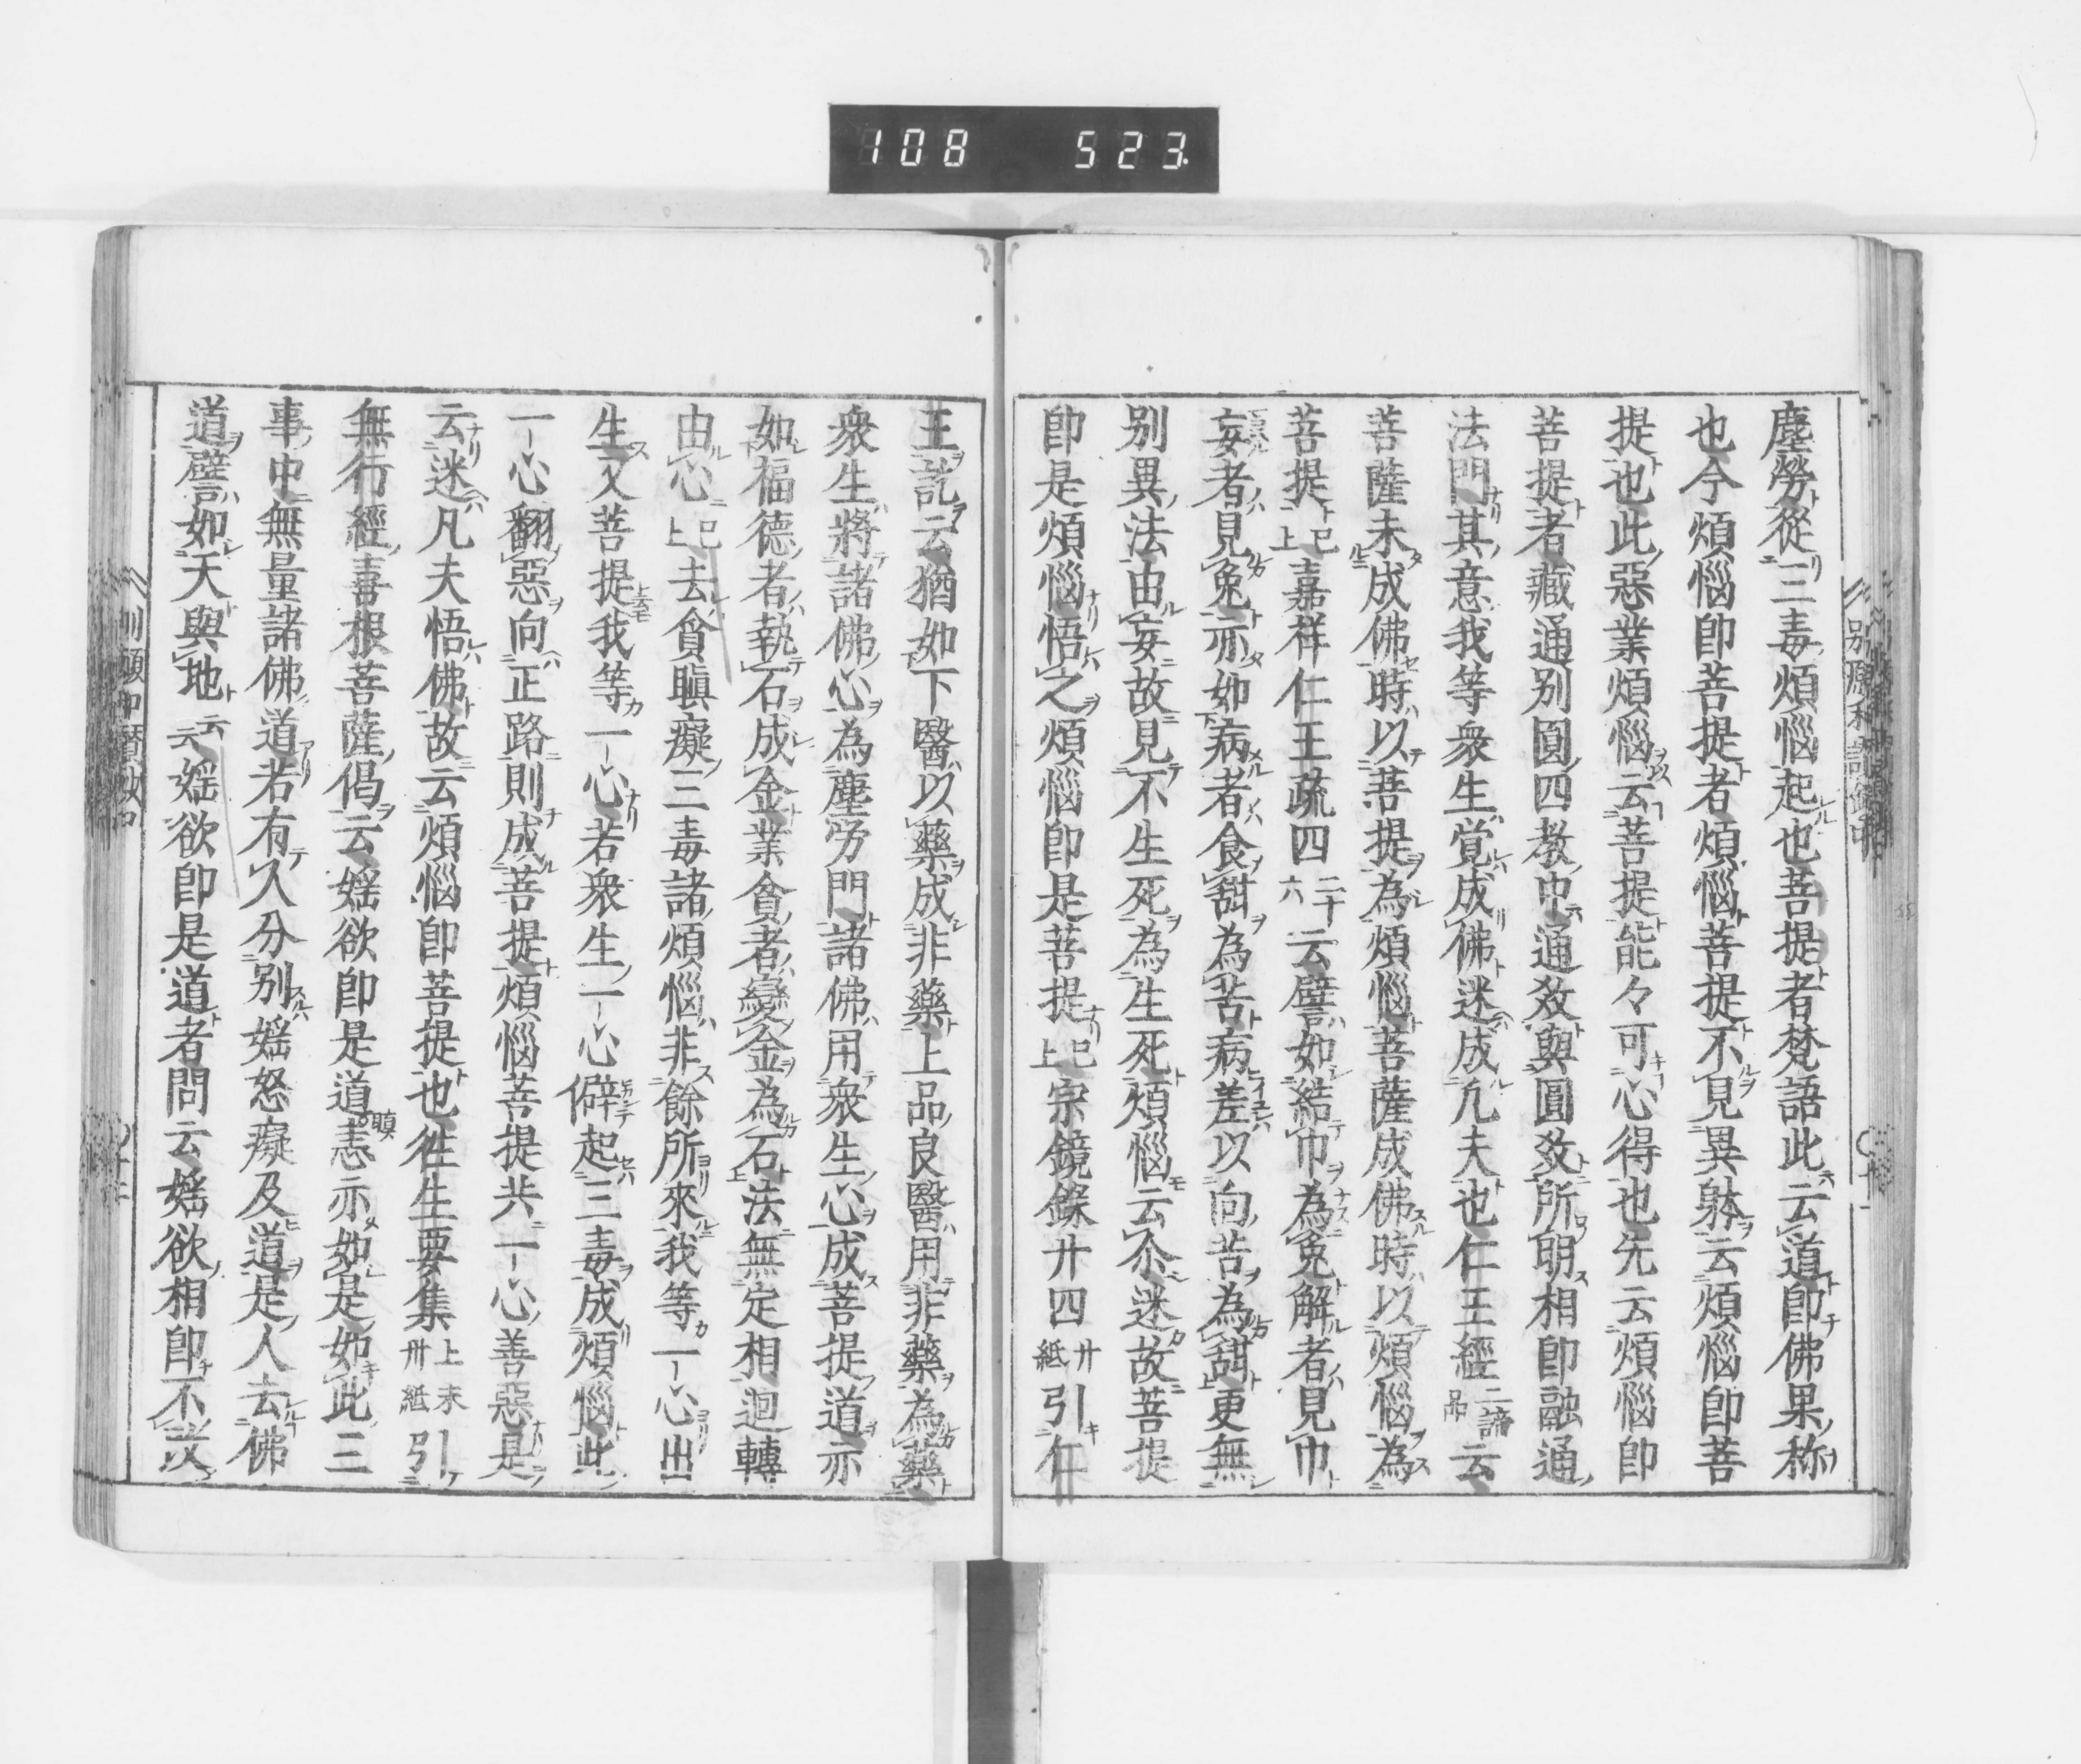 108 523
塵勞從三毒煩惱起也菩提者梵語此云道即佛果称
也今煩惱即菩提者煩惱菩提不見異躰云煩惱即菩
提也此惡業煩惱云菩提能々可心得也先云煩惱即
菩提者藏通別圓四教中通教與圓教所明相即融通
法門其意我等衆生覚成佛迷成凡夫也仁王經二諦品云
菩薩未成佛時以菩提為煩惱菩薩成佛時以煩惱為
菩提已上嘉祥仁王疏四二十六云譬如結巾為兔解者見巾
妄者見兔亦如病者食甜為苦病差以向苦為甜更無
別異法由妄故見不生死為生死煩惱云尒迷故菩提
即是煩惱悟之煩惱即是菩提已上宗鏡錄廿四廿紙引仁
王訖云猶如下醫以藥成非藥上品良醫用非藥為藥
衆生將諸佛心為塵労門諸佛用衆生心成菩提道亦
如福德者執石成金業貪者變金為石法無定相迴轉
由心已上去貪瞋癡三毒諸煩惱非餘所來我等一心出
生又菩提我等一心若衆生一心僻起三毒成煩惱此
一心翻惡向正路則成菩提煩惱菩提共一心善惡是
云迷凡夫悟佛故云煩惱即菩提也徃生要集上末卅紙引
無行經喜根菩薩偈云婬欲即是道恚瞋亦如是如此三
事中無量諸佛道若有人分別婬怒癡及道是人去佛
道譬如天與地云云婬欲即是道者問云婬欲相即不汝